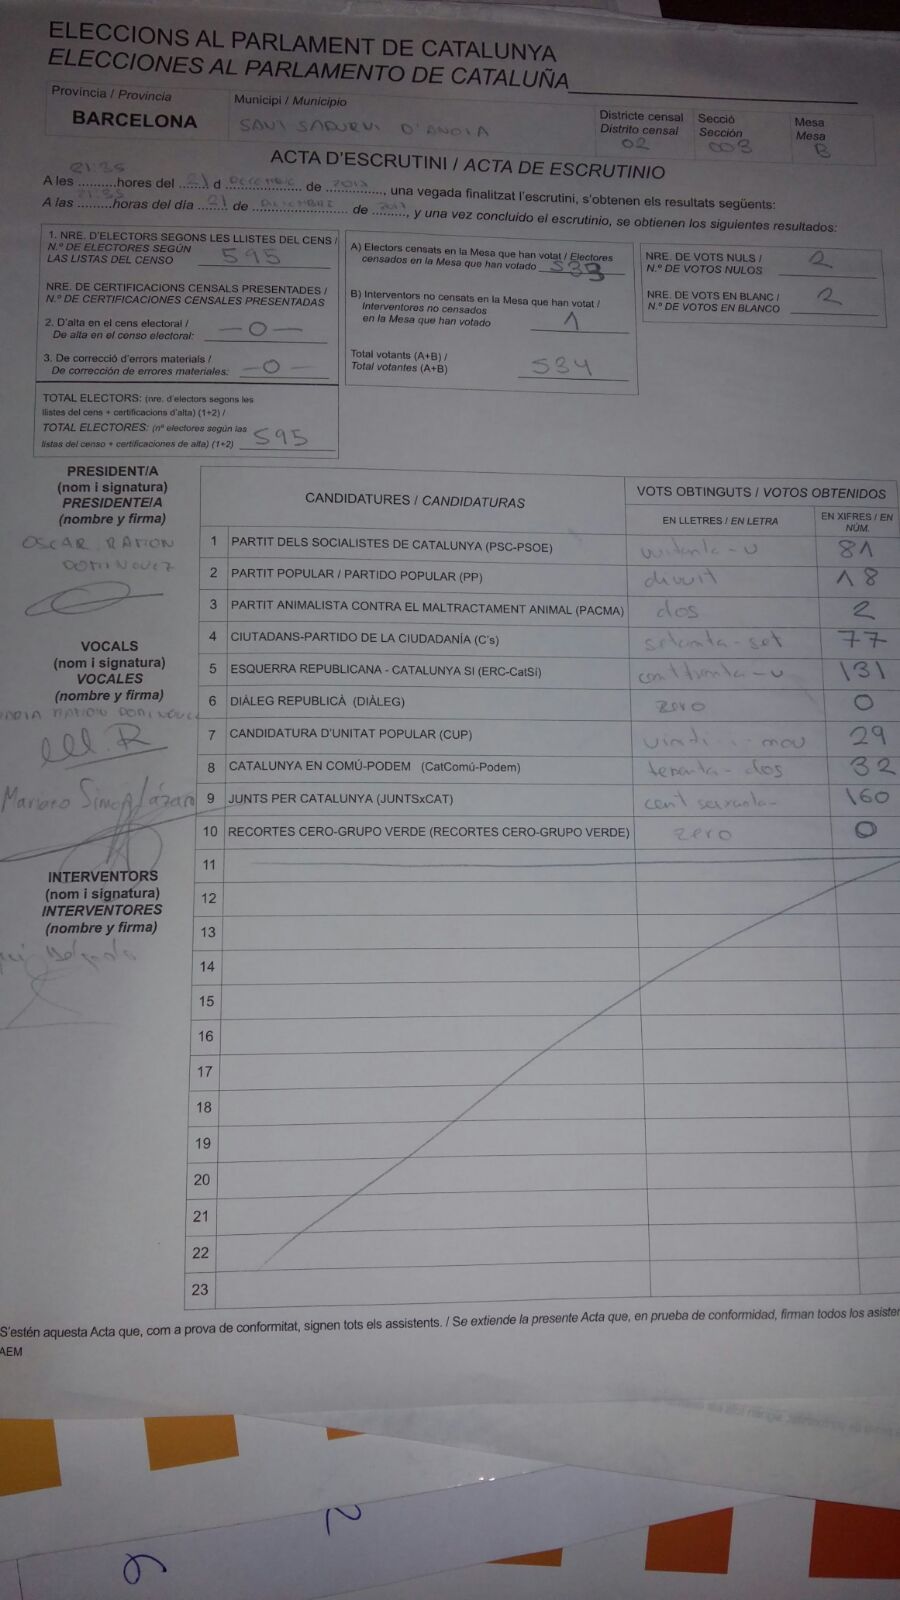 ELECCIONS AL PARLAMENT DE CATALUNYA
ELECCIONES AL PARLAMENTO DE CATALUÑA
Província / Provincia
BARCELONA
Municipi / Municipio
SANT SADURNI D'ANOIA
Districte censal
Distrito censal
02
Secció
Sección
003
Mesa
Mesa
B
ACTA D'ESCRUTINI / ACTA DE ESCRUTINIO
A les 21:35 hores del 21 d DECEMBRE de 2017, una vegada finalitzat l'escrutini, s'obtenen els resultats següents:
A las 21:35 horas del día 21 de DICIEMBRE de 2017, y una vez concluido el escrutinio, se obtienen los siguientes resultados:
1. NRE. D'ELECTORS SEGONS LES LLISTES DEL CENS /
N.º DE ELECTORES SEGÚN
LAS LISTAS DEL CENSO 595
NRE. DE CERTIFICACIONS CENSALS PRESENTADES /
N.º DE CERTIFICACIONES CENSALES PRESENTADAS
2. D'alta en el cens electoral /
De alta en el censo electoral: —0—
3. De correcció d'errors materials /
De corrección de errores materiales: —0—
TOTAL ELECTORS: (nre. d'electors segons les
llistes del cens + certificacions d'alta) (1+2) /
TOTAL ELECTORES: (nº electores según las
listas del censo + certificaciones de alta) (1+2) 595
A) Electors censats en la Mesa que han votat / Electores
censados en la Mesa que han votado 533
B) Interventors no censats en la Mesa que han votat /
Interventores no censados
en la Mesa que han votado 1
Total votants (A+B) /
Total votantes (A+B) 534
NRE. DE VOTS NULS /
N.º DE VOTOS NULOS 2
NRE. DE VOTS EN BLANC /
N.º DE VOTOS EN BLANCO 2
PRESIDENT/A
(nom i signatura)
PRESIDENTE/A
(nombre y firma)
OSCAR RAMON
DOMINGUEZ
VOCALS
(nom i signatura)
VOCALES
(nombre y firma)
RAMON DOMINGUEZ
M. R
Mariano Simón Lázaro
INTERVENTORS
(nom i signatura)
INTERVENTORES
(nombre y firma)
CANDIDATURES / CANDIDATURAS
VOTS OBTINGUTS / VOTOS OBTENIDOS
EN LLETRES / EN LETRA
EN XIFRES / EN
NÚM.
1 PARTIT DELS SOCIALISTES DE CATALUNYA (PSC-PSOE) vuitanta-u 81
2 PARTIT POPULAR / PARTIDO POPULAR (PP) divuit 18
3 PARTIT ANIMALISTA CONTRA EL MALTRACTAMENT ANIMAL (PACMA) dos 2
4 CIUTADANS-PARTIDO DE LA CIUDADANÍA (C's) setanta-set 77
5 ESQUERRA REPUBLICANA - CATALUNYA SÍ (ERC-CatSí) cent trenta-u 131
6 DIÀLEG REPUBLICÀ (DIÀLEG) zero 0
7 CANDIDATURA D'UNITAT POPULAR (CUP) vint-i-nou 29
8 CATALUNYA EN COMÚ-PODEM (CatComú-Podem) trenta-dos 32
9 JUNTS PER CATALUNYA (JUNTSxCAT) cent seixanta- 160
10 RECORTES CERO-GRUPO VERDE (RECORTES CERO-GRUPO VERDE) zero 0
11
12
13
14
15
16
17
18
19
20
21
22
23
S'estén aquesta Acta que, com a prova de conformitat, signen tots els assistents. / Se extiende la presente Acta que, en prueba de conformidad, firman todos los asiste
AEM
2
6